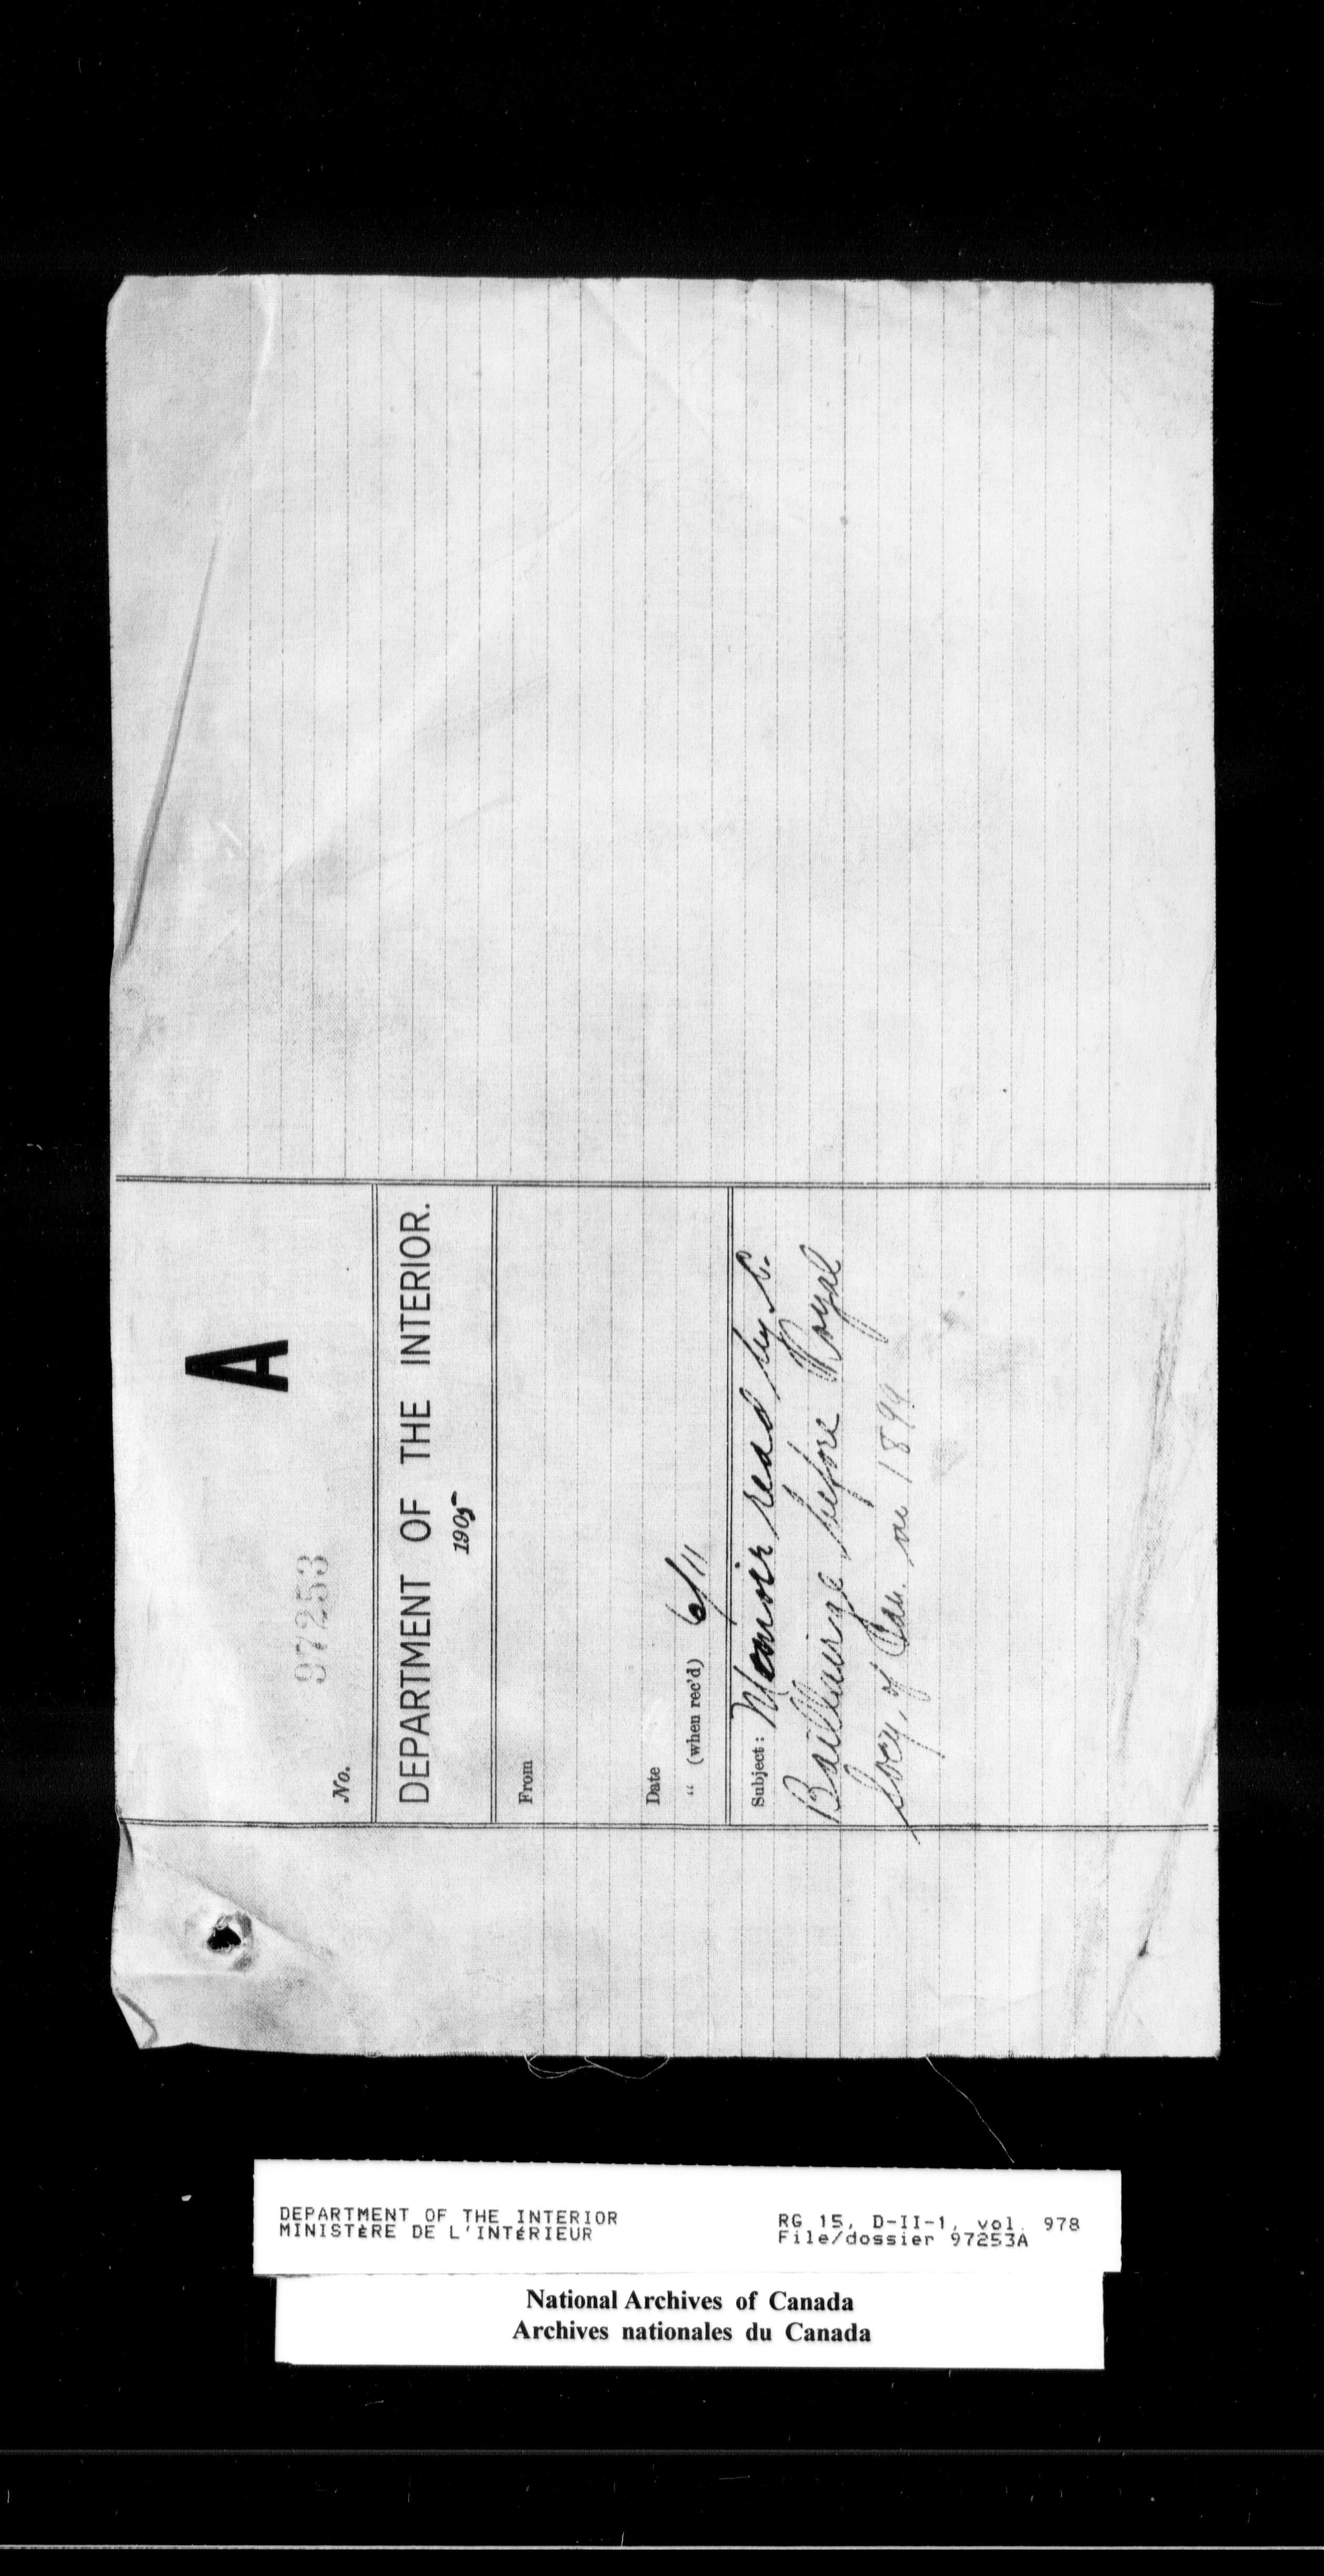 A
97253
No.
DEPARTMENT OF THE INTERIOR.
1905
From
Date
" (when rec'd) 6/11
Subject: Memoir read by C.
Baillairge before Royal
Socy. of Can. in 1899
DEPARTMENT OF THE INTERIOR
MINISTÈRE DE L'INTÉRIEUR
RG 15, D-II-1, vol. 978
File/dossier 97253A
National Archives of Canada
Archives nationales du Canada